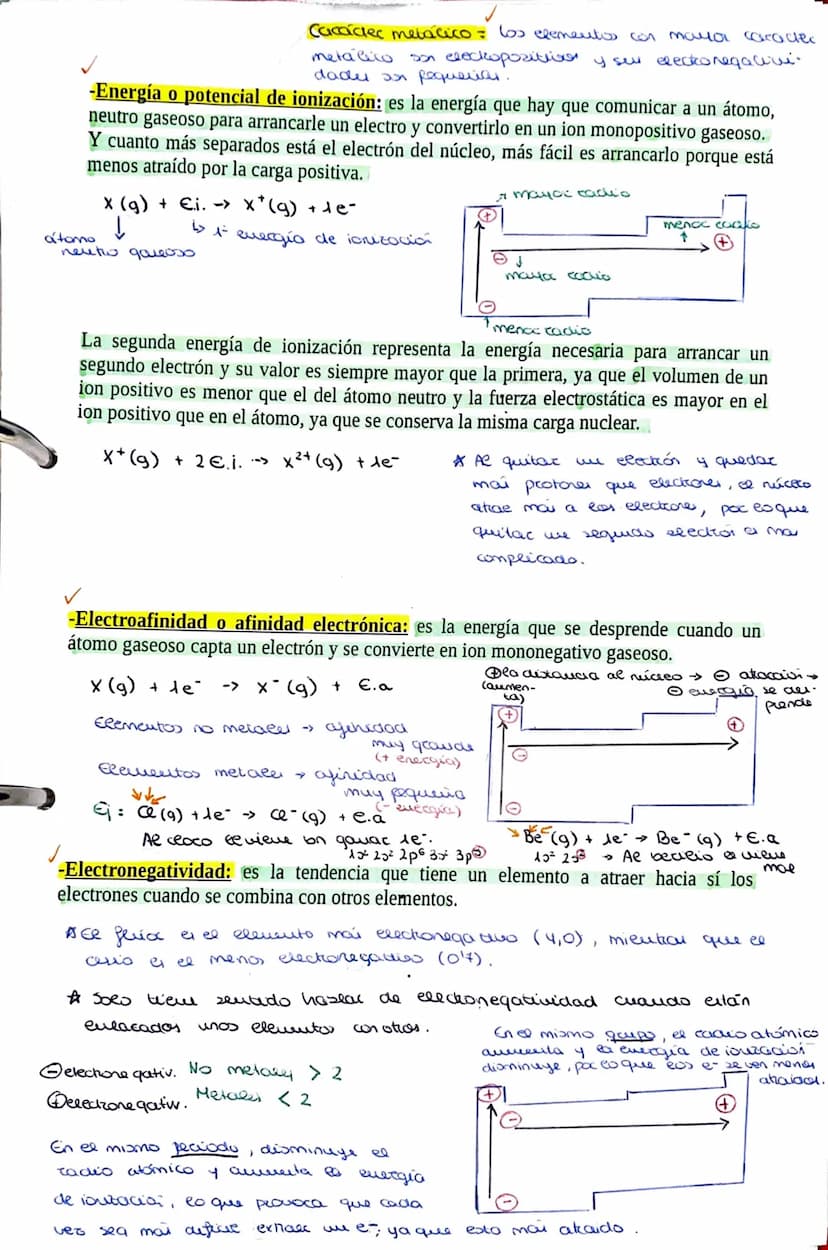 Carácter metálico = Los elementos con mayor caracter
metálico son electropositivos y sus electronegativi-
dades son pequeñas.
-Energía o potencial de ionización: es la energía que hay que comunicar a un átomo,
neutro gaseoso para arrancarle un electro y convertirlo en un ion monopositivo gaseoso.
Y cuanto más separados está el electrón del núcleo, más fácil es arrancarlo porque está
menos atraído por la carga positiva.
X(g) + E.i. -> X⁺(g) + 1e⁻
↳ 1ª energía de ionización
átomo
neutro gaseoso
mayor radio
+
menor radio
+
-
mayor radio
-
menor radio
La segunda energía de ionización representa la energía necesaria para arrancar un
segundo electrón y su valor es siempre mayor que la primera, ya que el volumen de un
ion positivo es menor que el del átomo neutro y la fuerza electrostática es mayor en el
ion positivo que en el átomo, ya que se conserva la misma carga nuclear.
X⁺(g) + 2E.i. -> X²⁺(g) + 1e⁻
* Al quitar un electrón y quedar
más protones que electrones, el núcleo
atrae más a los electrones, por lo que
quitar un segundo electrón es más
complicado.
-Electroafinidad o afinidad electrónica: es la energía que se desprende cuando un
átomo gaseoso capta un electrón y se convierte en ion mononegativo gaseoso.
X(g) + 1e⁻ -> X⁻(g) + E.a
⊕ la distancia al núcleo → ⊖ atracción →
(aumen-
ta)
⊖ energía se des-
prende
Elementos no metales → afinidad
muy grande
(+ energía)
Elementos metales → afinidad
muy pequeña
(- energía)
+
+
-
-
Ej: Cl(g) + 1e⁻ -> Cl⁻(g) + E.a
Al cloro le viene bien ganar 1e⁻.
1s² 2s² 2p⁶ 3s² 3p⁵
Be(g) + 1e⁻ → Be⁻(g) + E.a
1s² 2s² → Al berilio le viene
mal
-Electronegatividad: es la tendencia que tiene un elemento a atraer hacia sí los
electrones cuando se combina con otros elementos.
* El flúor es el elemento más electronegativo (4,0), mientras que el
cesio es el menos electronegativo (0'7).
* Solo tiene sentido hablar de electronegatividad cuando están
enlazados unos elementos con otros.
⊖ electronegativ. No metales > 2
⊕ electronegativ. Metales < 2
En el mismo grupo, el radio atómico
aumenta y la energía de ionización
disminuye, por lo que los e⁻ se ven menos
atraídos.
+
+
-
-
En el mismo periodo, disminuye el
radio atómico y aumenta la energía
de ionización, lo que provoca que cada
vez sea más difícil extraer un e⁻, ya que está más atraído.